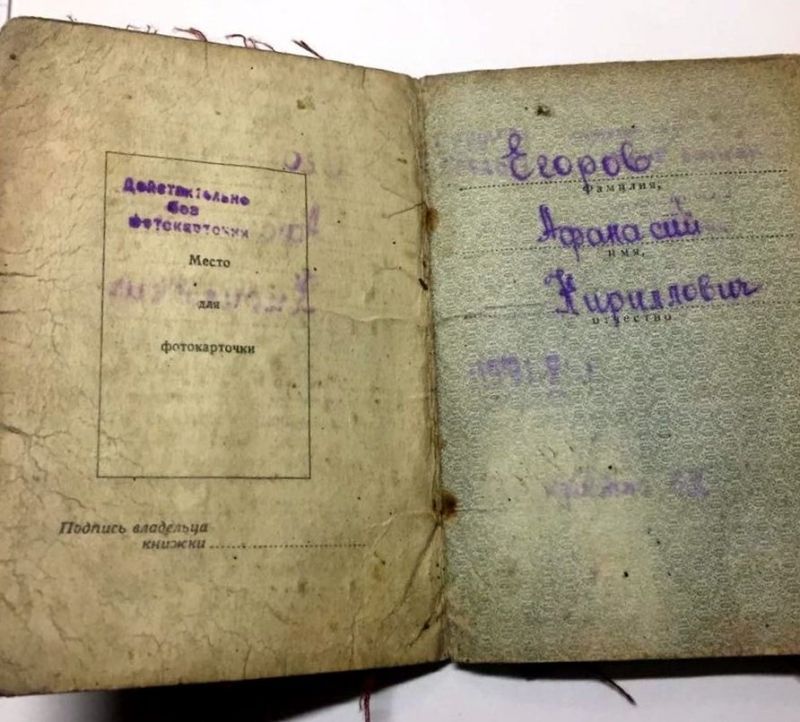 Действительно
без
фотокарточки
Место
для
фотокарточки
Подпись владельца
книжки
Егоров
фамилия,
Афанасий
имя,
Кириллович
отчество